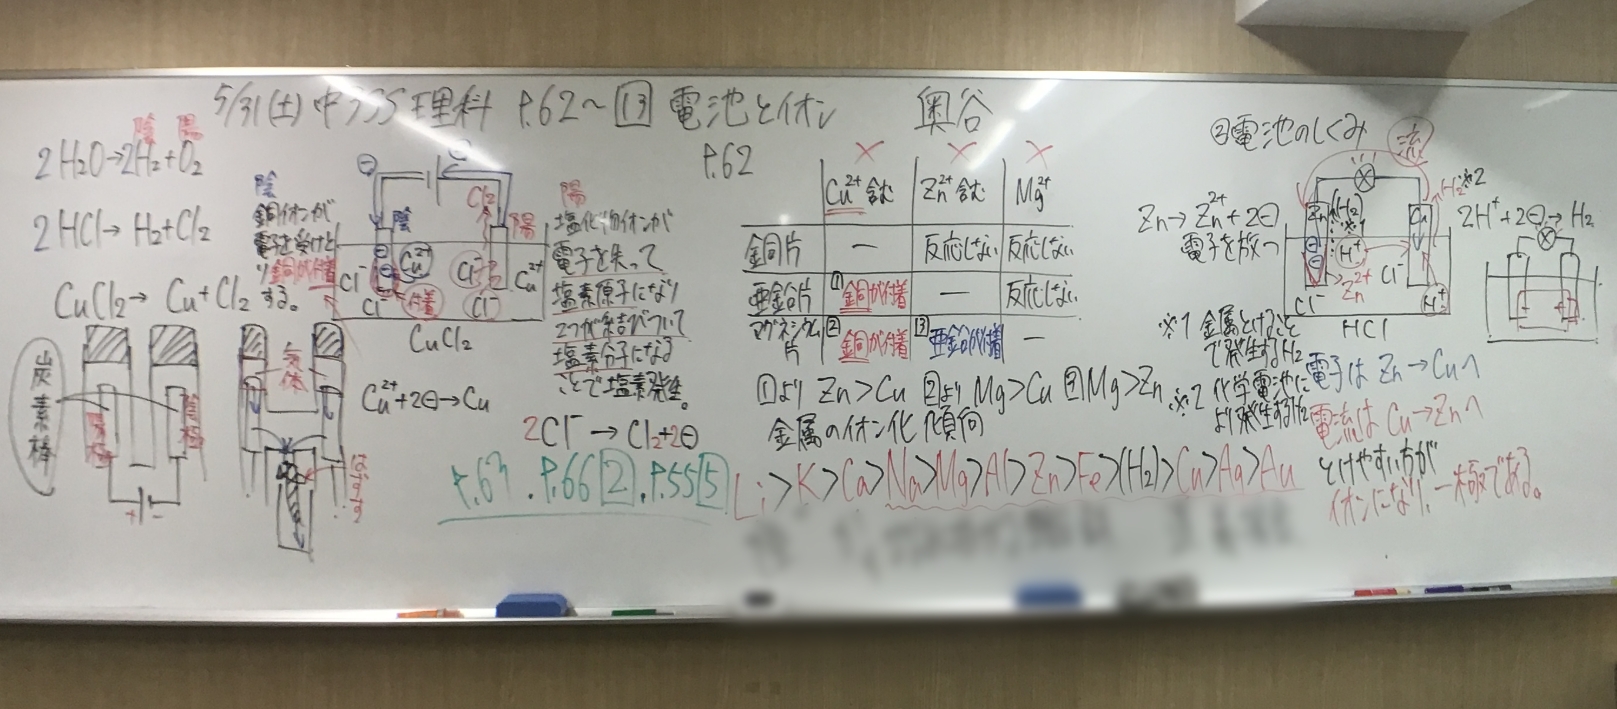 5/31(土) 中3SS 理科 P.62～13 電池とイオン 奥谷
陰 陽
2H₂O→2H₂+O₂
2HCl→H₂+Cl₂
CuCl₂→Cu+Cl₂
炭素棒
陽極
陰極
+ -
気体
陰
銅イオンが
電子を受けと
り銅が付着
する。
⊖
⊖
陰
Cl₂
陽
Cu²⁺
Cl⁻
Cl⁻
付着
Cl⁻
Cl⁻
Cu²⁺
CuCl₂
Cu²⁺+2⊖→Cu
陽
塩化物イオンが
電子を失って
塩素原子になり
2つが結びついて
塩素分子になる
ことで塩素発生。
2Cl⁻→Cl₂+2⊖
P.63. P.66 2. P.55 5
P.62
× × ×
Cu²⁺含む Zn²⁺含む Mg²⁺
銅片 ー 反応しない 反応しない
亜鉛片 ①銅が付着 ー 反応しない
マグネシウム片 ②銅が付着 ③亜鉛が付着 ー
①より Zn>Cu ②より Mg>Cu ③Mg>Zn
金属のイオン化傾向
Li>K>Ca>Na>Mg>Al>Zn>Fe>(H₂)>Cu>Ag>Au
②電池のしくみ
流
Zn→Zn²⁺+2⊖
電子を放つ
Zn
(H₂)
※1
H⁺
Zn²⁺
Zn
Cl⁻
Cu
H₂※2
Cl⁻
H⁺
HCl
2H⁺+2⊖→H₂
※1 金属とけること
で発生するH₂
※2 化学電池に
より発生するH₂
電子は Zn→Cuへ
電流は Cu→Znへ
とけやすい方が
イオンになり、ー極である。